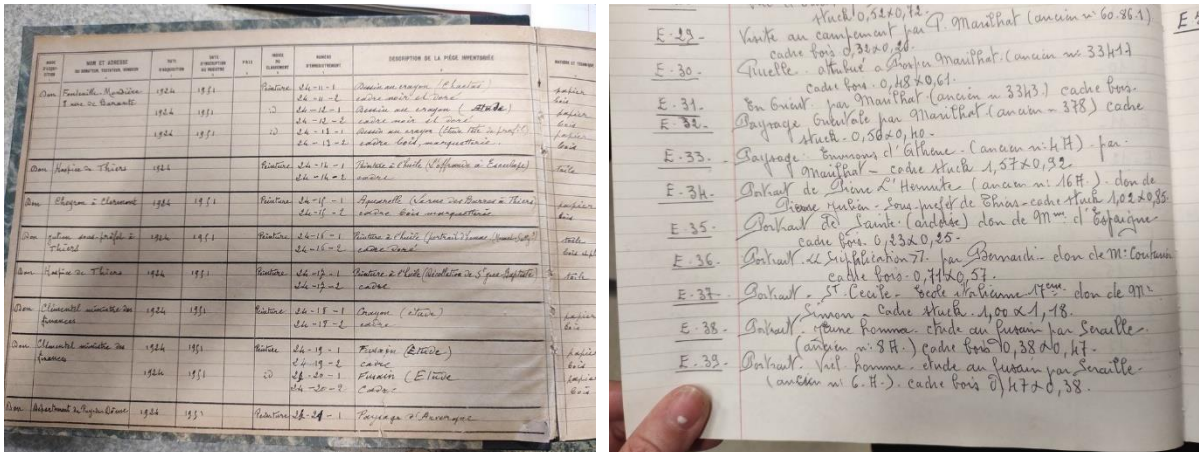 NOM ET ADRESSE
DATE D'ACQUISITION
PRIX
DESCRIPTION DE LA PIÈCE INVENTORIÉE
Don Fontenille Mondière 1924 1951 Peinture 24-11-1 Dessin au crayon papier
8 rue de Barante 24-11-2 cadre noir et doré bois
1924 1951 id 24-12-1 Dessin au crayon (étude) papier
24-12-2 cadre noir et doré bois
1924 1951 id 24-13-1 Dessin au crayon (Etude tête de profil) papier
24-13-2 cadre bois, marquetterie bois
Don Hospice de Thiers 1924 Peinture 24-14-1 Peinture à l'huile (L'offrande à Esculape) toile
24-14-2 cadre
Don Cheyron à Clermont 1924 1951 Peinture 24-15-1 Aquarelle à Thiers) papier
24-15-2 cadre bois marquetterie bois
Don sous-préfet à 1924 1951 Peinture 24-16-1 Peinture à l'huile (portrait d'homme toile
Thiers 24-16-2 cadre doré bois
Don Hospice de Thiers 1924 1951 Peinture 24-17-1 Peinture à l'huile (Décollation de St Jean Baptiste) toile
24-17-2 cadre
Don Clémentel ministre des 1924 1951 Peinture 24-18-1 Crayon (étude) papier
finances 24-18-2 cadre bois
Don Clémentel ministre des 1924 1951 Peinture 24-19-1 Fusain (Etude) papier
finances 24-19-2 cadre bois
1924 1951 id 24-20-1 Fusain (Etude papier
24-20-2 Cadre bois
Don Département du Puy de Dôme 1924 1951 Peinture 24-21-1 Paysage d'Auvergne
stuck 0,52x0,72.
E.29- Visite au campement par P. Marilhat (ancien n° 60.86.1)
cadre bois 0,32x0,20.
E.30- Pucelle. attribué a Prosper Marilhat. (ancien n° 33417
cadre bois. 0,48x0,61.
E.31- En Orient par Marilhat (ancien n° 3343) cadre bois.
E.32- Paysage Orientale par Marilhat (ancien n° 378) cadre
stuck. 0,50x0,40.
E.33- Paysage. Environs d'Athène. (ancien n: 4A) par
Marilhat - cadre stuck 1,57x0,92.
E.34- Portrait de Pierre L'Hermite (ancien n: 16A). don de
Pierre sous-préfet de Thiers - cadre stuck 1,02x0,85.
E.35 Portrait de Sainte. (ardoise) don de Mme d'Espaigne
cadre bois. 0,23x0,25-
E.36- Portrait. "Supplication". par Bernardi. don de Mr
cadre bois. 0,71x0,57.
E.37 Portrait. St Cecile. Ecole italienne 17eme don de Mr
Simon. cadre stuck. 1,00x1,18.
E.38- Portrait. Jeune homme. etude au fusain par Seraille.
(ancien n: 8A.) cadre bois 0,38x0,47.
E.39- Portrait. Vieil homme. etude au fusain par Seraille
(ancien n: 6.A). cadre bois 0,47x0,38.